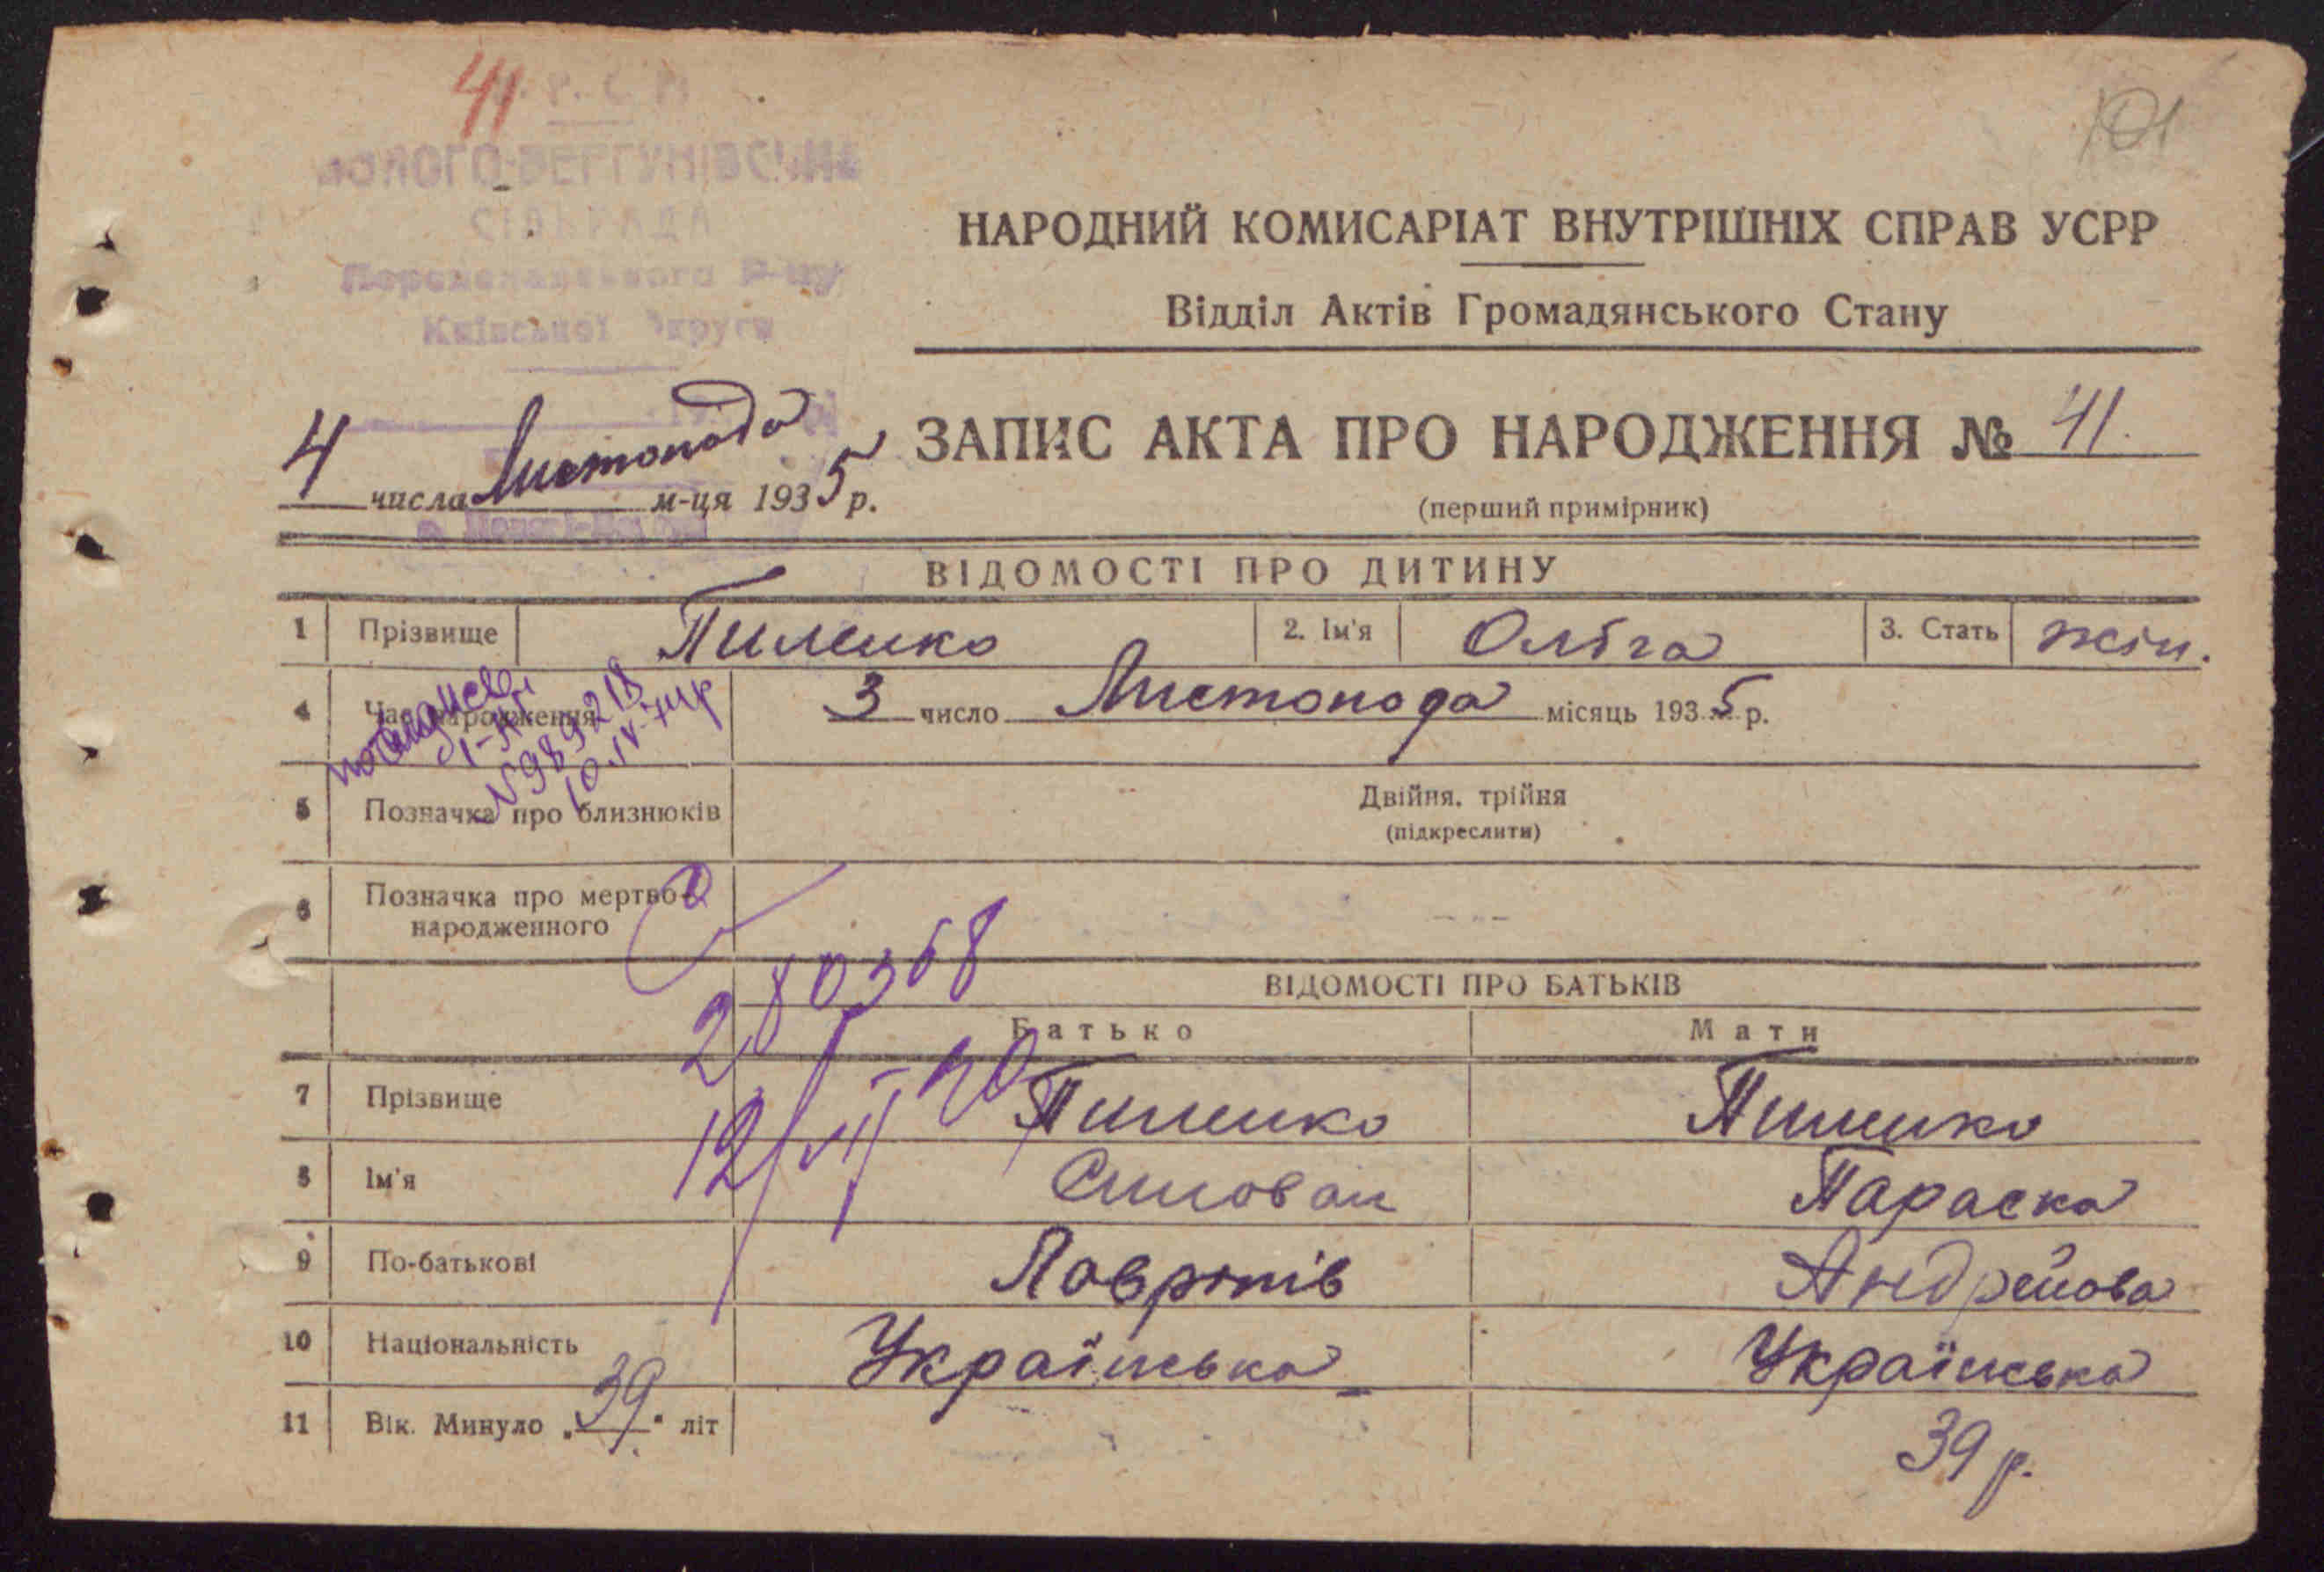 41
101
СІЛЬРАДА
Київської Округи
НАРОДНИЙ КОМИСАРІАТ ВНУТРІШНІХ СПРАВ УСРР
Відділ Актів Громадянського Стану
4 числа Листопада м-ця 1935 р.
ЗАПИС АКТА ПРО НАРОДЖЕННЯ № 41.
(перший примірник)
ВІДОМОСТІ ПРО ДИТИНУ
1 Прізвище Пименко 2. Ім'я Ольга 3. Стать жін.
4 Час народження 3 число Листопада місяць 1935 р.
5 Позначка про близнюків Двійня, трійня
(підкреслити)
6 Позначка про мертво-
народженного
280368
ВІДОМОСТІ ПРО БАТЬКІВ
Батько Мати
7 Прізвище Пименко Пименко
8 Ім'я Параска
9 По-батькові Андрейова
10 Національність Українська Українська
11 Вік. Минуло „39" літ 39 р.